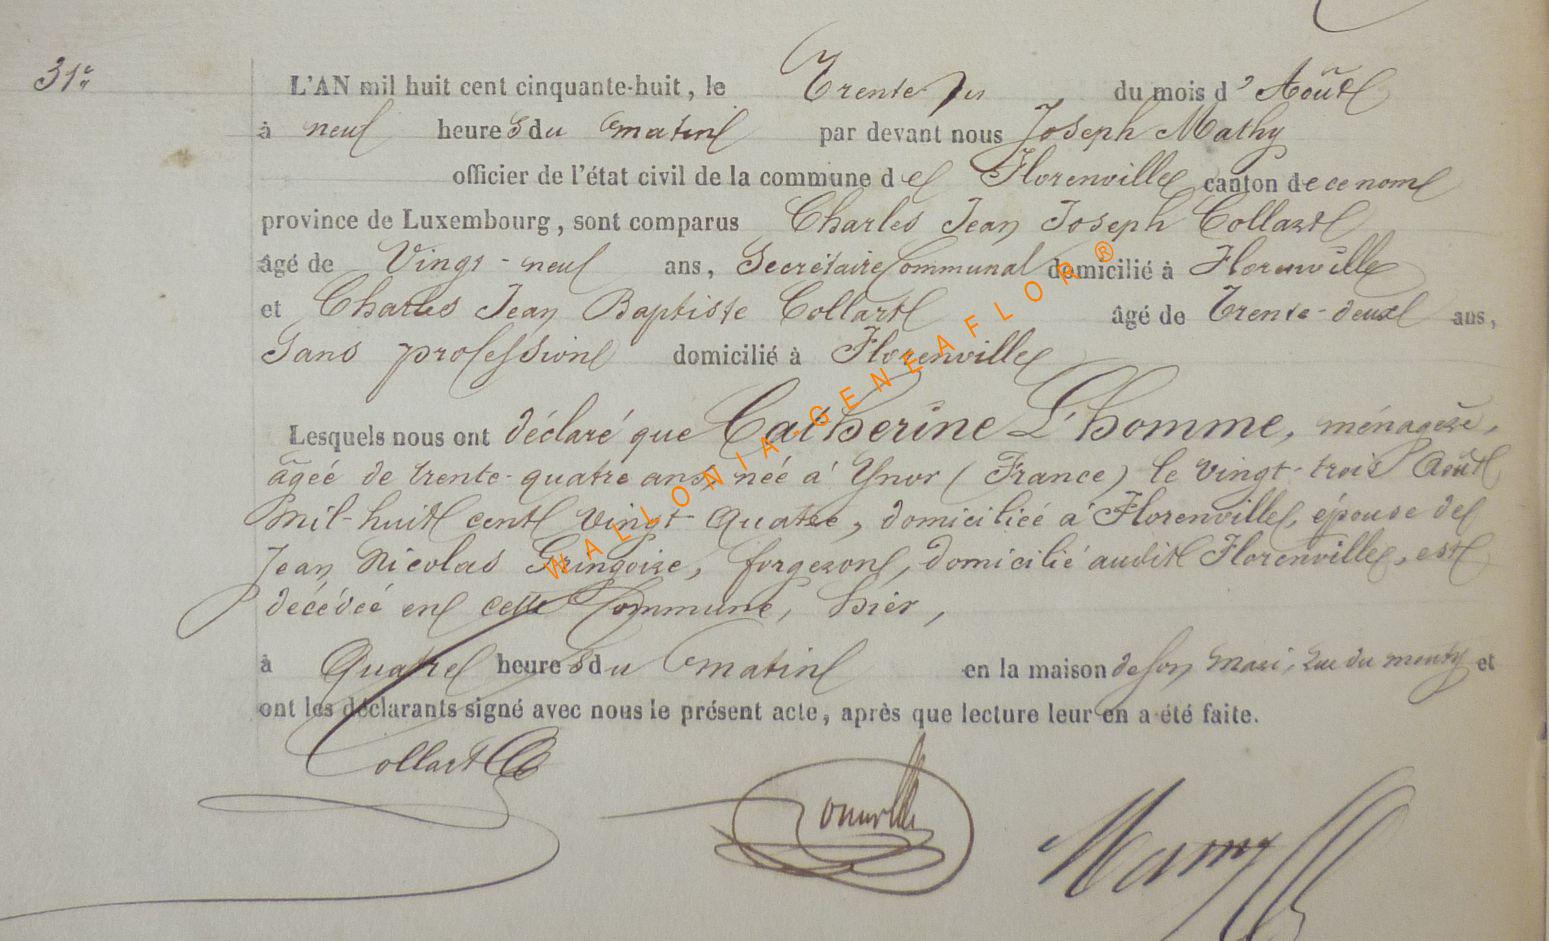 31e
L'AN mil huit cent cinquante-huit, le Trente un du mois d'Août
à neuf heures du matin par devant nous Joseph Mathy
officier de l'état civil de la commune de Florenville canton de ce nom
province de Luxembourg, sont comparus Charles Jean Joseph Collart
âgé de Vingt-neuf ans, Secrétaire Communal domicilié à Florenville
et Charles Jean Baptiste Collart âgé de Trente-deux ans,
Sans profession domicilié à Florenville
Lesquels nous ont déclaré que Catherine L'homme, ménagère,
âgée de trente-quatre ans, née à Ynor (France) le vingt-trois Août
mil-huit cent vingt-quatre, domiciliée à Florenville, épouse de
Jean Nicolas Gringoire, forgeron, domicilié audit Florenville, est
décédée en cette Commune, hier,
à Quatre heures du matin en la maison de son mari, rue du et
ont les déclarants signé avec nous le présent acte, après que lecture leur en a été faite.
Collart
WALLONIA-GENEAFLOR®